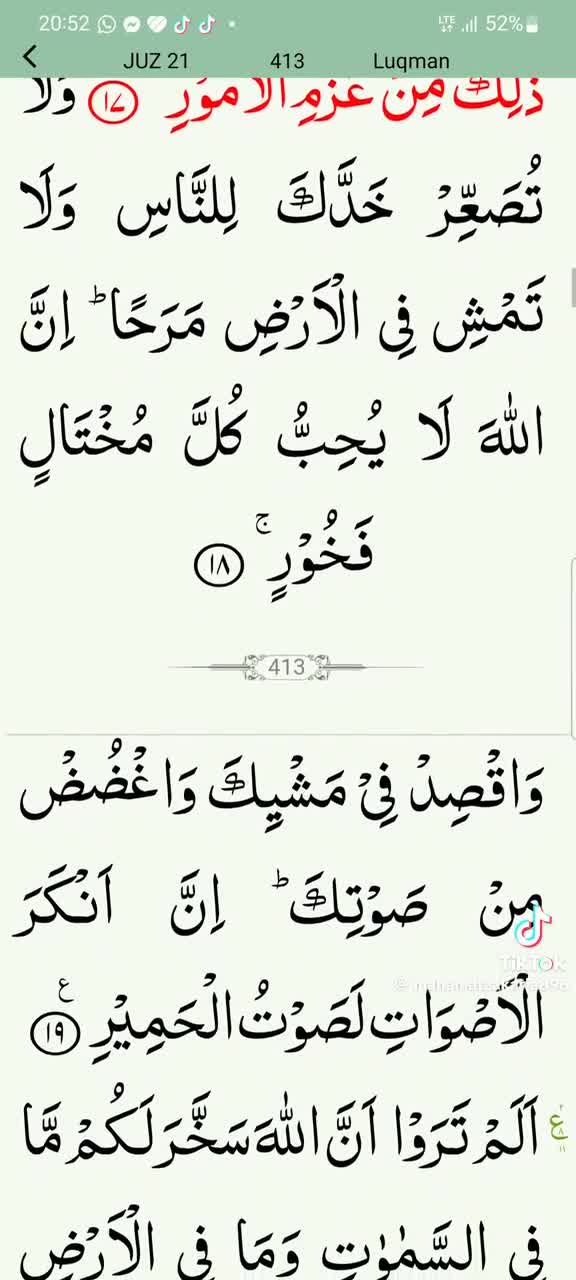 20:52 LTE 52%
JUZ 21 413 Luqman
ذٰلِكَ مِنْ عَزْمِ الْاُمُوْرِ ﴿١٧﴾ وَلَا
تُصَعِّرْ خَدَّكَ لِلنَّاسِ وَلَا
تَمْشِ فِي الْاَرْضِ مَرَحًا ؕ اِنَّ
اللّٰهَ لَا يُحِبُّ كُلَّ مُخْتَالٍ
فَخُوْرٍ ۚ ﴿١٨﴾
413
وَاقْصِدْ فِيْ مَشْيِكَ وَاغْضُضْ
مِنْ صَوْتِكَ ؕ اِنَّ اَنْكَرَ
الْاَصْوَاتِ لَصَوْتُ الْحَمِيْرِ ﴿١٩﴾ ع
اَلَمْ تَرَوْا اَنَّ اللّٰهَ سَخَّرَ لَكُمْ مَّا
فِي السَّمٰوٰتِ وَمَا فِي الْاَرْضِ
TikTok